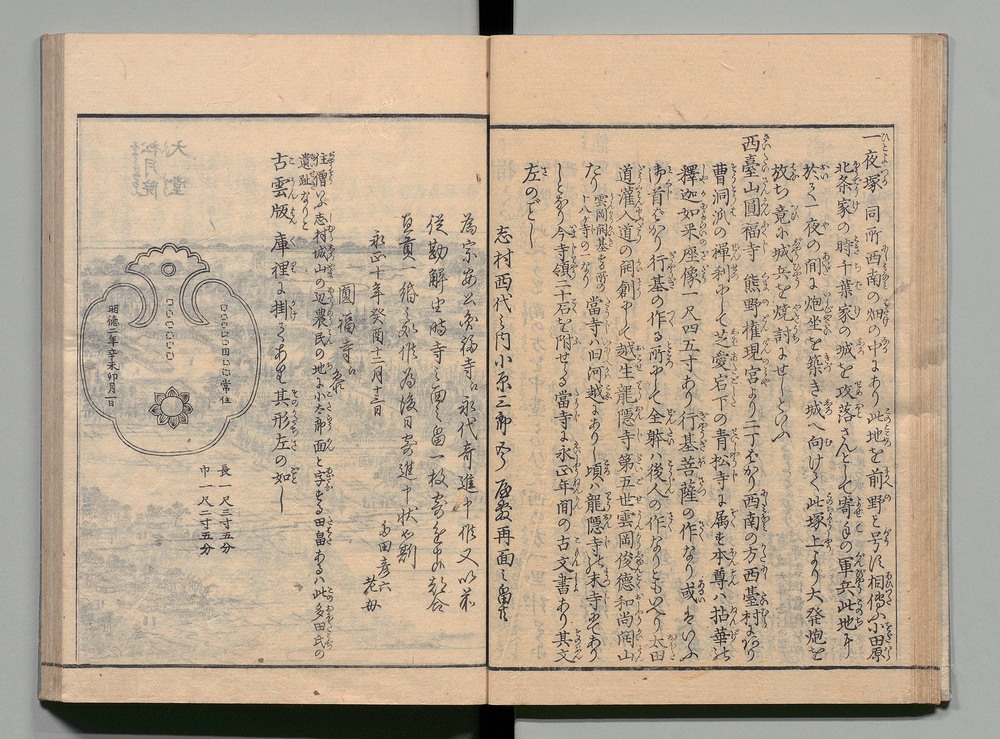 一夜塚 同所西南の畑の中にあり此地を前野と号す相傳ふ小田原
北条家の時千葉家の城を攻落さんとして寄手の軍兵此地に
於て一夜の間に炮坐を築き城へ向けて此塚上より大発炮を
放ち竟に城兵を焼討にせしといふ
西臺山圓福寺 熊野権現宮より二丁ばかり西南の方西臺村にあり
曹洞派の禅刹にして芝愛宕下の青松寺に属す本尊ハ拈華の
釋迦如来座像一尺四五寸あり行基菩薩の作なり或云
御首ばかり行基の作る所にして全躰ハ後人の作なりともいへり太田
道灌入道の開創にして越生龍隠寺第五世雲岡俊徳和尚開山
たり 雲岡開基する所の十八ケ寺の一なり 當寺ハ旧河越にありし頃ハ龍隠寺の末寺にてあり
しとなり今寺領二十石を附せらる當寺に永正年間の古文書あり其文
左のごとし
志村西代之内小原三郎五郎屋敷再面之畠
為宗安公灸福寺江永代寄進申候又以前
従勘解由時寺之面之畠一枚
直貫一緡之永代為後日寄進申状如剳
永正十年癸酉十二月十三日
多田彦六
老母
圓福寺江参
住僧いふ志村城山の辺農民の地に小太郎面と字する田畠あるハ此多田氏の
遺趾なりと
古雲版 庫裡に掛てあり其形左の如し
長一尺三寸五分
巾一尺二寸五分
常住
明徳二年辛未卯月一日